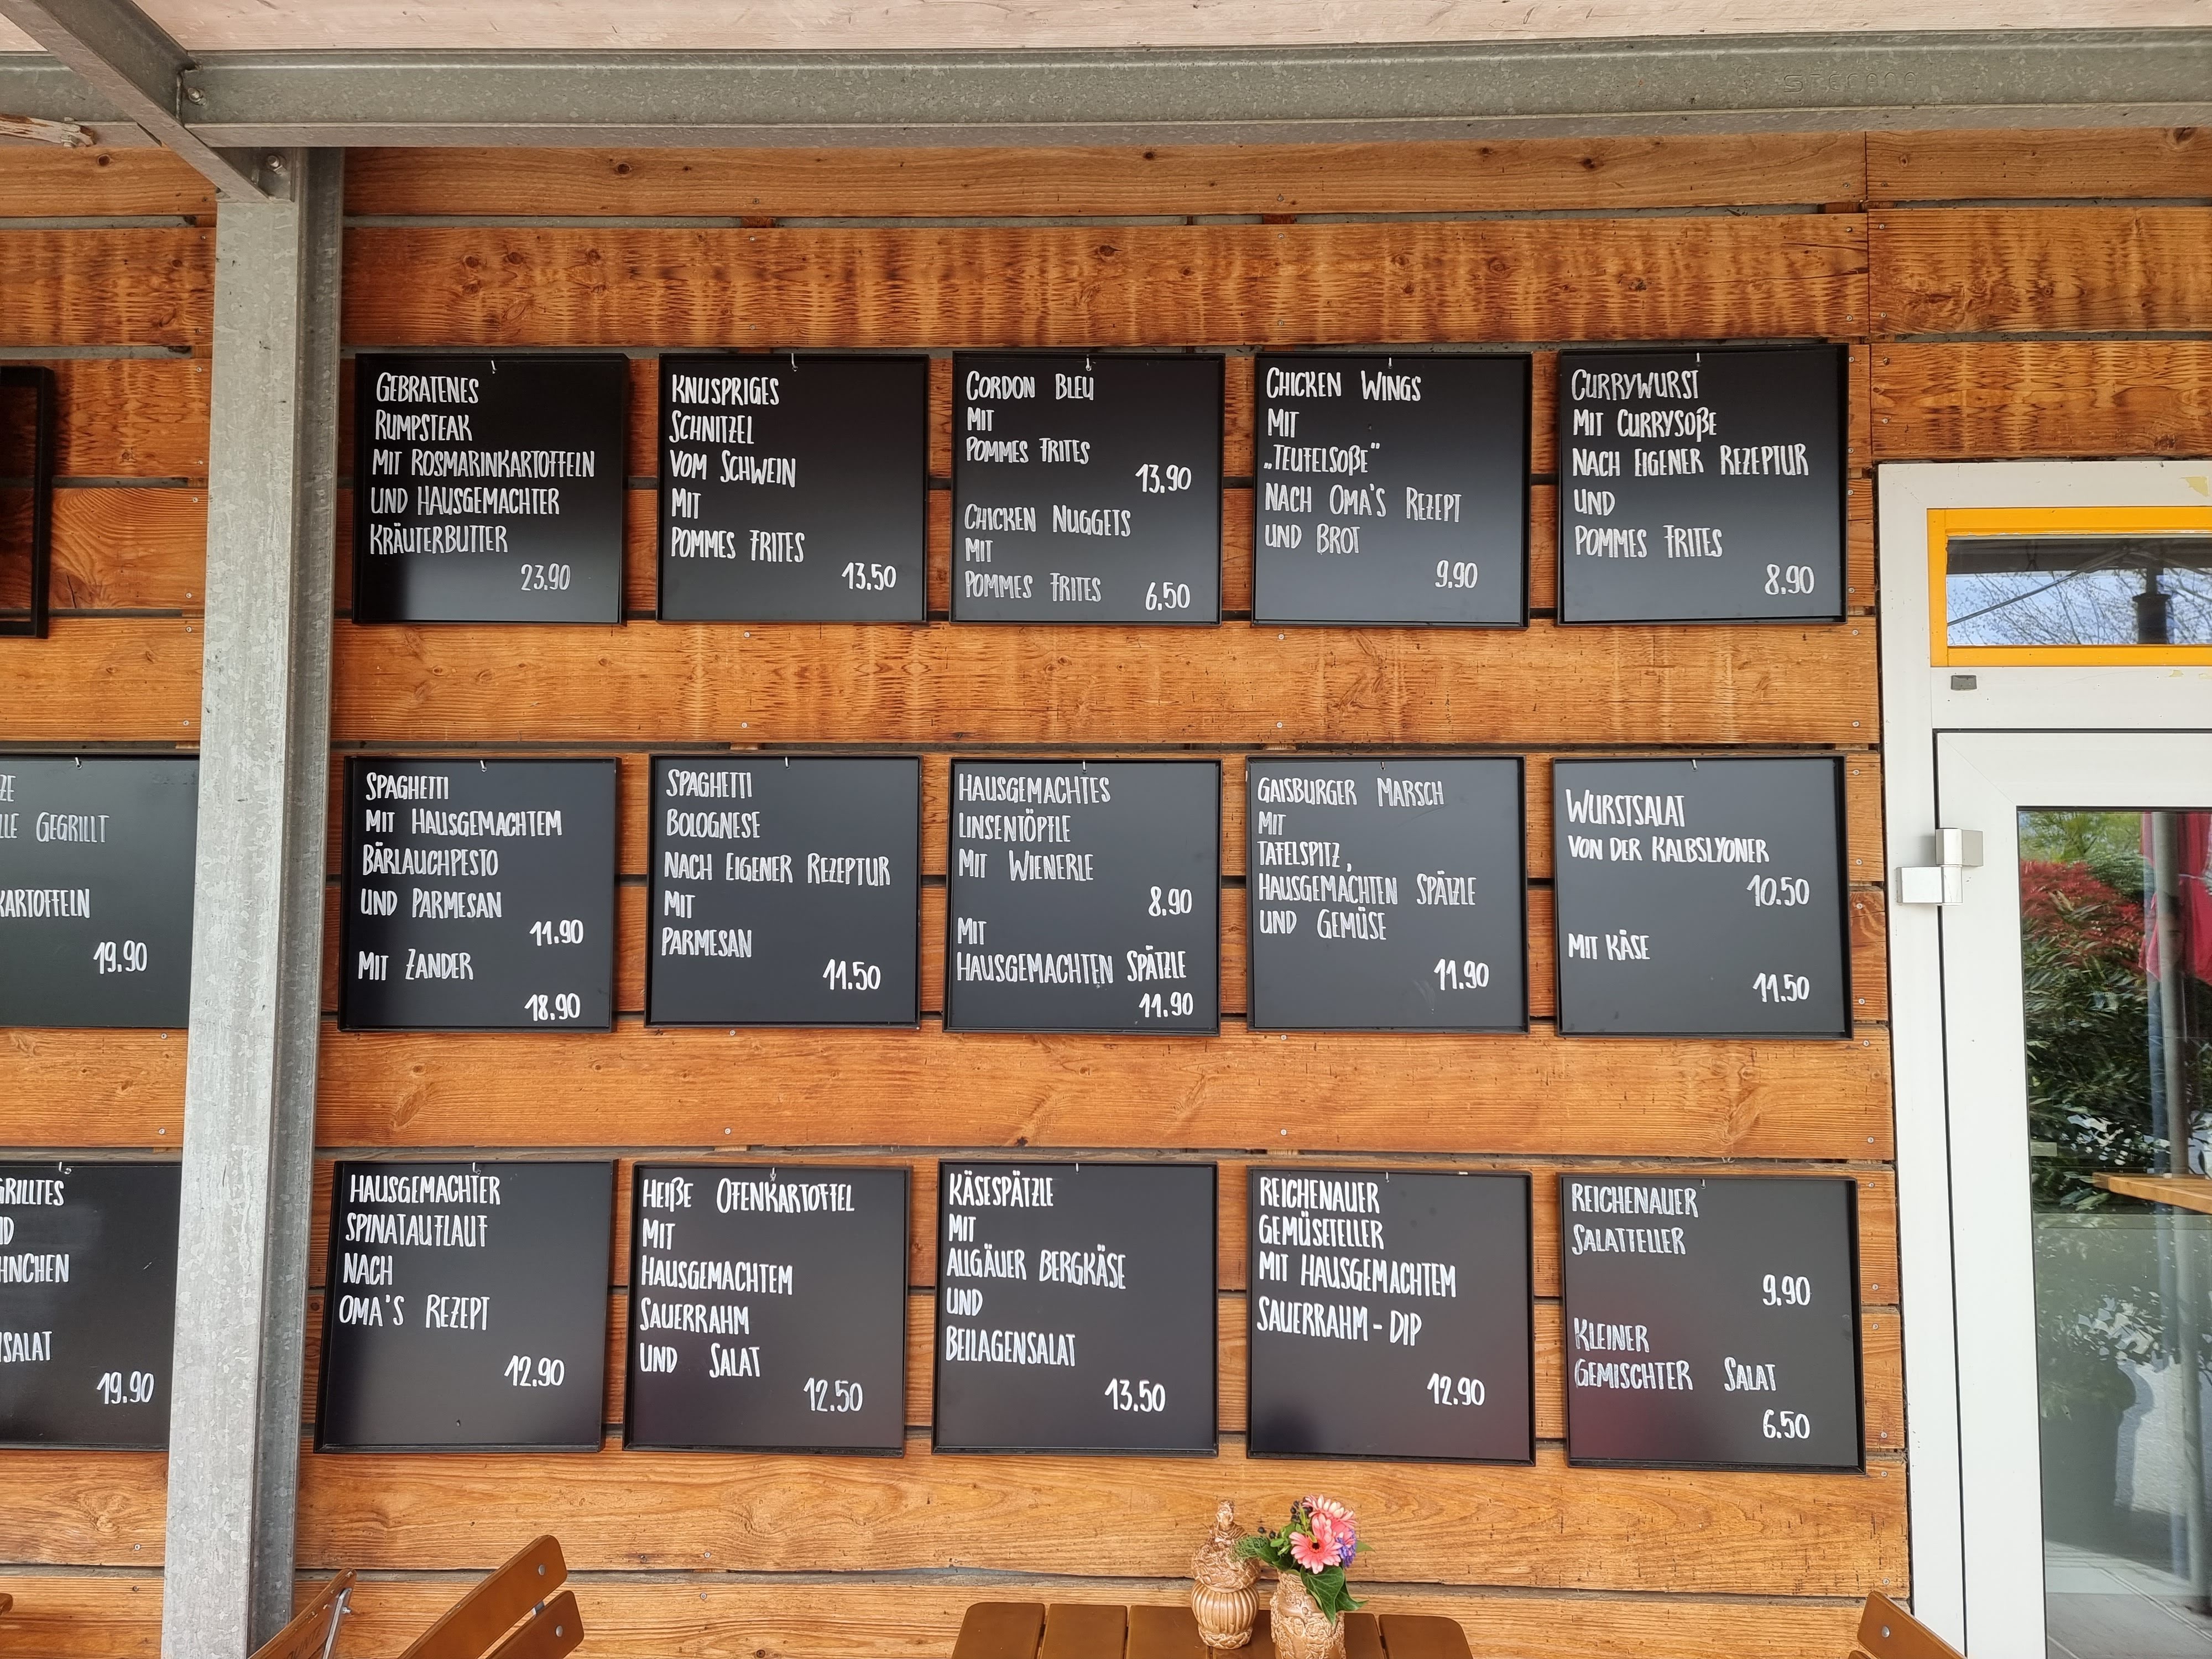 GEBRATENES
RUMPSTEAK
MIT ROSMARINKARTOFFELN
UND HAUSGEMACHTER
KRÄUTERBUTTER
23.90
KNUSPRIGES
SCHNITZEL
VOM SCHWEIN
MIT
POMMES FRITES
13.50
CORDON BLEU
MIT
POMMES FRITES
13.90
CHICKEN NUGGETS
MIT
POMMES FRITES 6.50
CHICKEN WINGS
MIT
„TEUFELSOßE"
NACH OMA'S REZEPT
UND BROT
9.90
CURRYWURST
MIT CURRYSOßE
NACH EIGENER REZEPTUR
UND
POMMES FRITES
8.90
ZE
LLE GEGRILLT
KARTOFFELN
19.90
SPAGHETTI
MIT HAUSGEMACHTEM
BÄRLAUCHPESTO
UND PARMESAN
11.90
MIT ZANDER
18.90
SPAGHETTI
BOLOGNESE
NACH EIGENER REZEPTUR
MIT
PARMESAN
11.50
HAUSGEMACHTES
LINSENTÖPFLE
MIT WIENERLE
8.90
MIT
HAUSGEMACHTEN SPÄTZLE
11.90
GAISBURGER MARSCH
MIT
TAFELSPITZ,
HAUSGEMACHTEN SPÄTZLE
UND GEMÜSE
11.90
WURSTSALAT
VON DER KALBSLYONER
10.50
MIT KÄSE
11.50
GRILLTES
ND
HNCHEN
SALAT
19.90
HAUSGEMACHTER
SPINATAUFLAUF
NACH
OMA'S REZEPT
12.90
HEIßE OFENKARTOFFEL
MIT
HAUSGEMACHTEM
SAUERRAHM
UND SALAT
12.50
KÄSESPÄTZLE
MIT
ALLGÄUER BERGKÄSE
UND
BEILAGENSALAT
13.50
REICHENAUER
GEMÜSETELLER
MIT HAUSGEMACHTEM
SAUERRAHM-DIP
12.90
REICHENAUER
SALATTELLER
9.90
KLEINER
GEMISCHTER SALAT
6.50